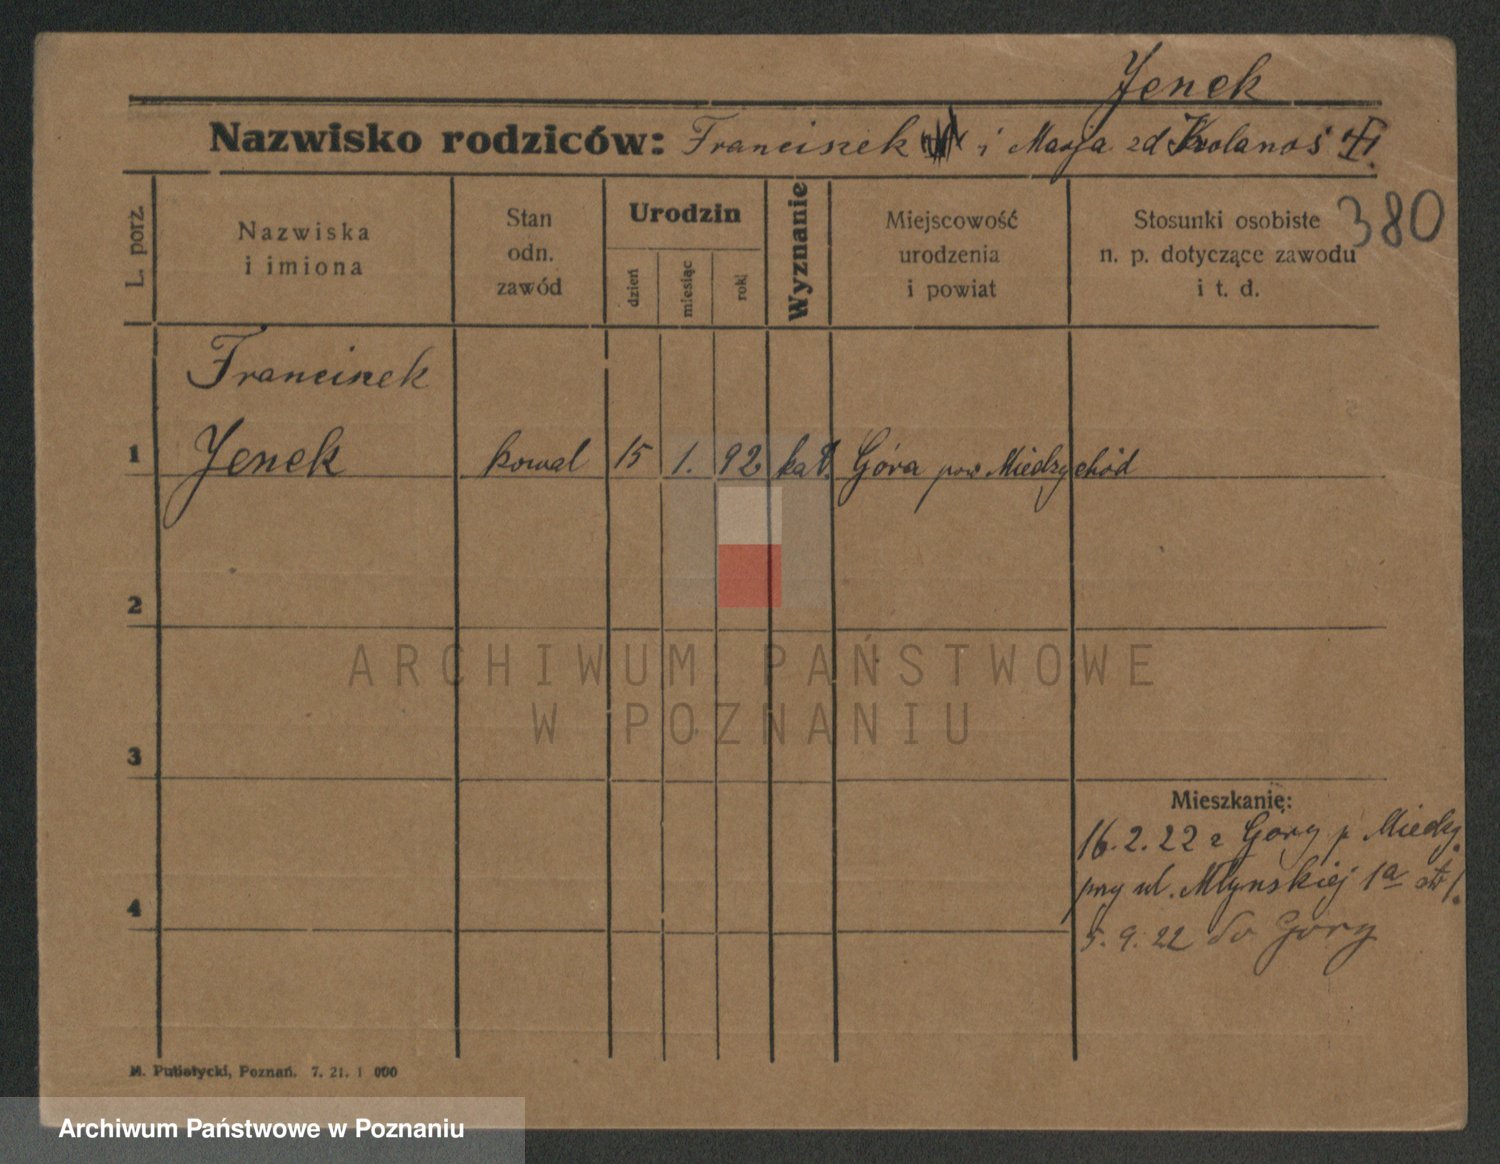 Jenek
Nazwisko rodziców: Franciszek i Marja zd Krolanoś
380
L. porz.
Nazwiska
i imiona
Stan
odn.
zawód
Urodzin
dzień
miesiąc
rok
Wyznanie
Miejscowość
urodzenia
i powiat
Stosunki osobiste
n. p. dotyczące zawodu
i t. d.
Franciszek
1 Jenek kowal 15 1. 92 kat. Góra pow Międzychód
2
ARCHIWUM PAŃSTWOWE
W POZNANIU
3
Mieszkanie:
16.2.22 z Góry p Między.
przy ul. Młynskiej 1a
4
5.9.22 do Góry
M. Putiatycki, Poznań. 7. 21. 1 000
Archiwum Państwowe w Poznaniu